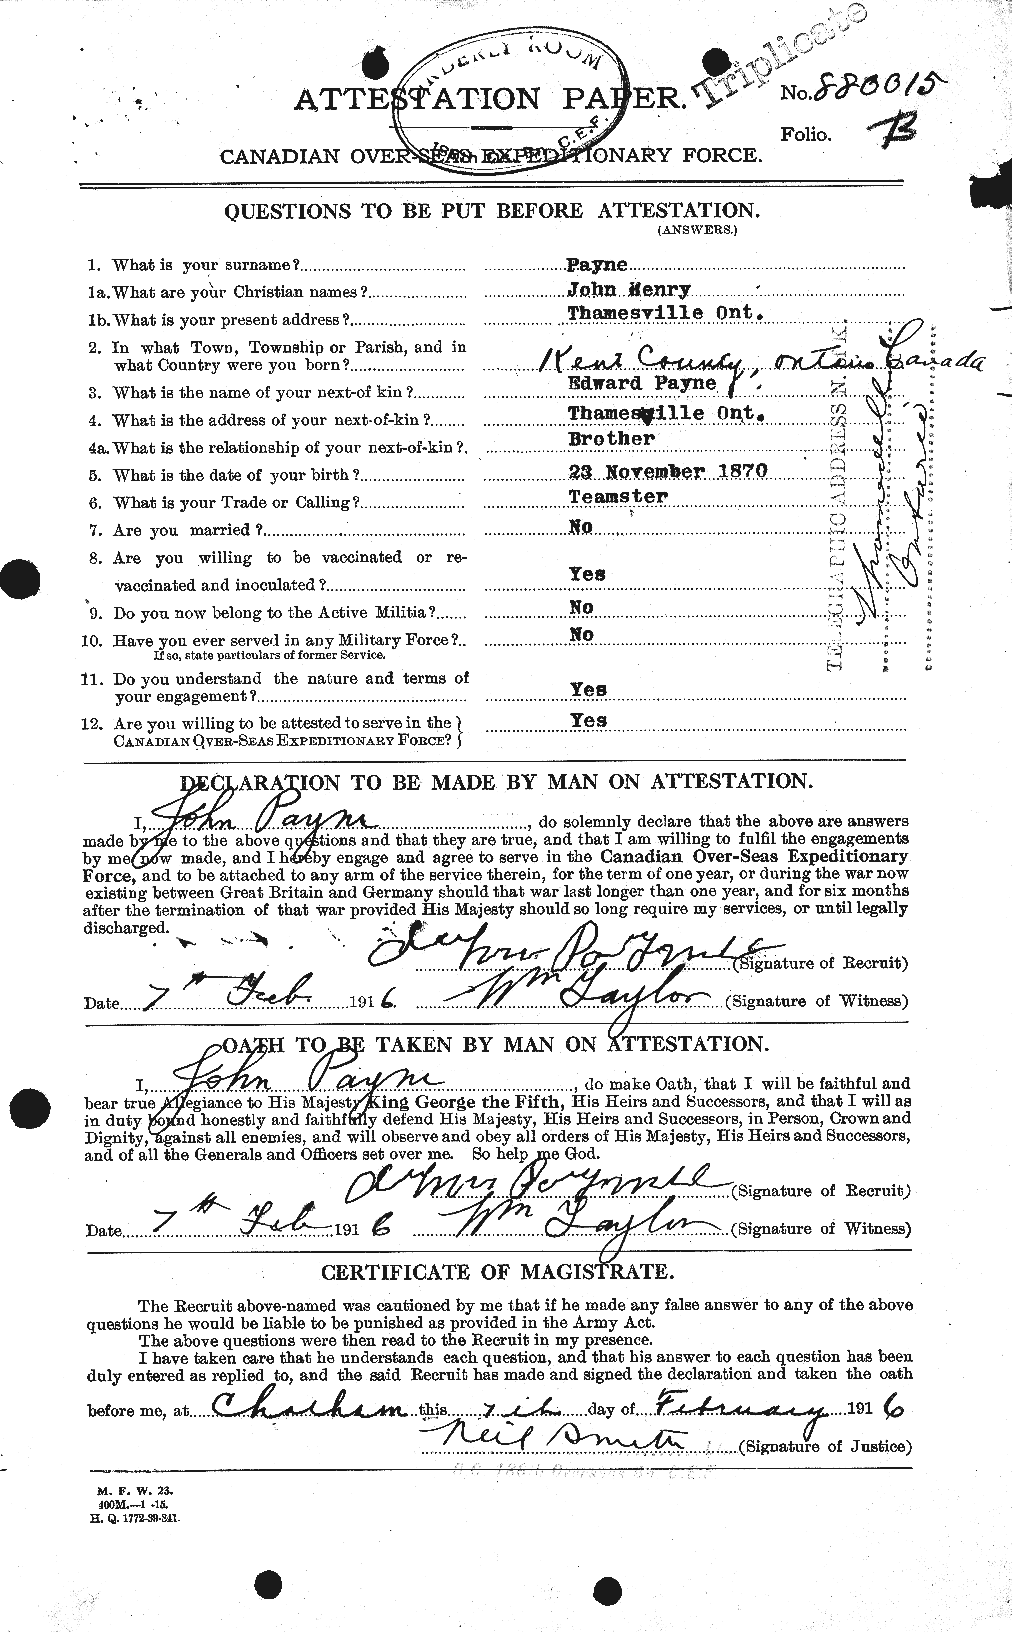 ORDERLY ROOM
C.E.F.
Triplicate
ATTESTATION PAPER.
No. 880015
Folio. B
CANADIAN OVER-SEAS EXPEDITIONARY FORCE.
QUESTIONS TO BE PUT BEFORE ATTESTATION.
(ANSWERS.)
1. What is your surname?.......... Payne
1a. What are your Christian names?.......... John Henry
1b. What is your present address?.......... Thamesville Ont.
2. In what Town, Township or Parish, and in
what Country were you born?.......... Kent County, Ontario Canada
3. What is the name of your next-of kin?.......... Edward Payne
4. What is the address of your next-of-kin?.......... Thamesville Ont.
4a. What is the relationship of your next-of-kin?. Brother
5. What is the date of your birth?.......... 23 November 1870
6. What is your Trade or Calling?.......... Teamster
7. Are you married?.......... No
8. Are you willing to be vaccinated or re-
vaccinated and inoculated?.......... Yes
9. Do you now belong to the Active Militia?.......... No
10. Have you ever served in any Military Force?.. No
If so, state particulars of former Service.
11. Do you understand the nature and terms of
your engagement?.......... Yes
12. Are you willing to be attested to serve in the }
CANADIAN OVER-SEAS EXPEDITIONARY FORCE? } Yes
TELEGRAPHIC ADDRESS N. K.
Thamesville
Ontario
DECLARATION TO BE MADE BY MAN ON ATTESTATION.
I, John Payne, do solemnly declare that the above are answers
made by me to the above questions and that they are true, and that I am willing to fulfil the engagements
by me now made, and I hereby engage and agree to serve in the Canadian Over-Seas Expeditionary
Force, and to be attached to any arm of the service therein, for the term of one year, or during the war now
existing between Great Britain and Germany should that war last longer than one year, and for six months
after the termination of that war provided His Majesty should so long require my services, or until legally
discharged.
(Signature of Recruit)
Date 7th Feb. 1916. Wm Taylor (Signature of Witness)
OATH TO BE TAKEN BY MAN ON ATTESTATION.
I, John Payne, do make Oath, that I will be faithful and
bear true Allegiance to His Majesty King George the Fifth, His Heirs and Successors, and that I will as
in duty bound honestly and faithfully defend His Majesty, His Heirs and Successors, in Person, Crown and
Dignity, against all enemies, and will observe and obey all orders of His Majesty, His Heirs and Successors,
and of all the Generals and Officers set over me. So help me God.
(Signature of Recruit)
Date 7th Feb 1916 Wm Taylor (Signature of Witness)
CERTIFICATE OF MAGISTRATE.
The Recruit above-named was cautioned by me that if he made any false answer to any of the above
questions he would be liable to be punished as provided in the Army Act.
The above questions were then read to the Recruit in my presence.
I have taken care that he understands each question, and that his answer to each question has been
duly entered as replied to, and the said Recruit has made and signed the declaration and taken the oath
before me, at Chatham this 7th day of February 1916
Neil Smith (Signature of Justice)
M. F. W. 23.
400M.—1-15.
H. Q. 1772-39-841.